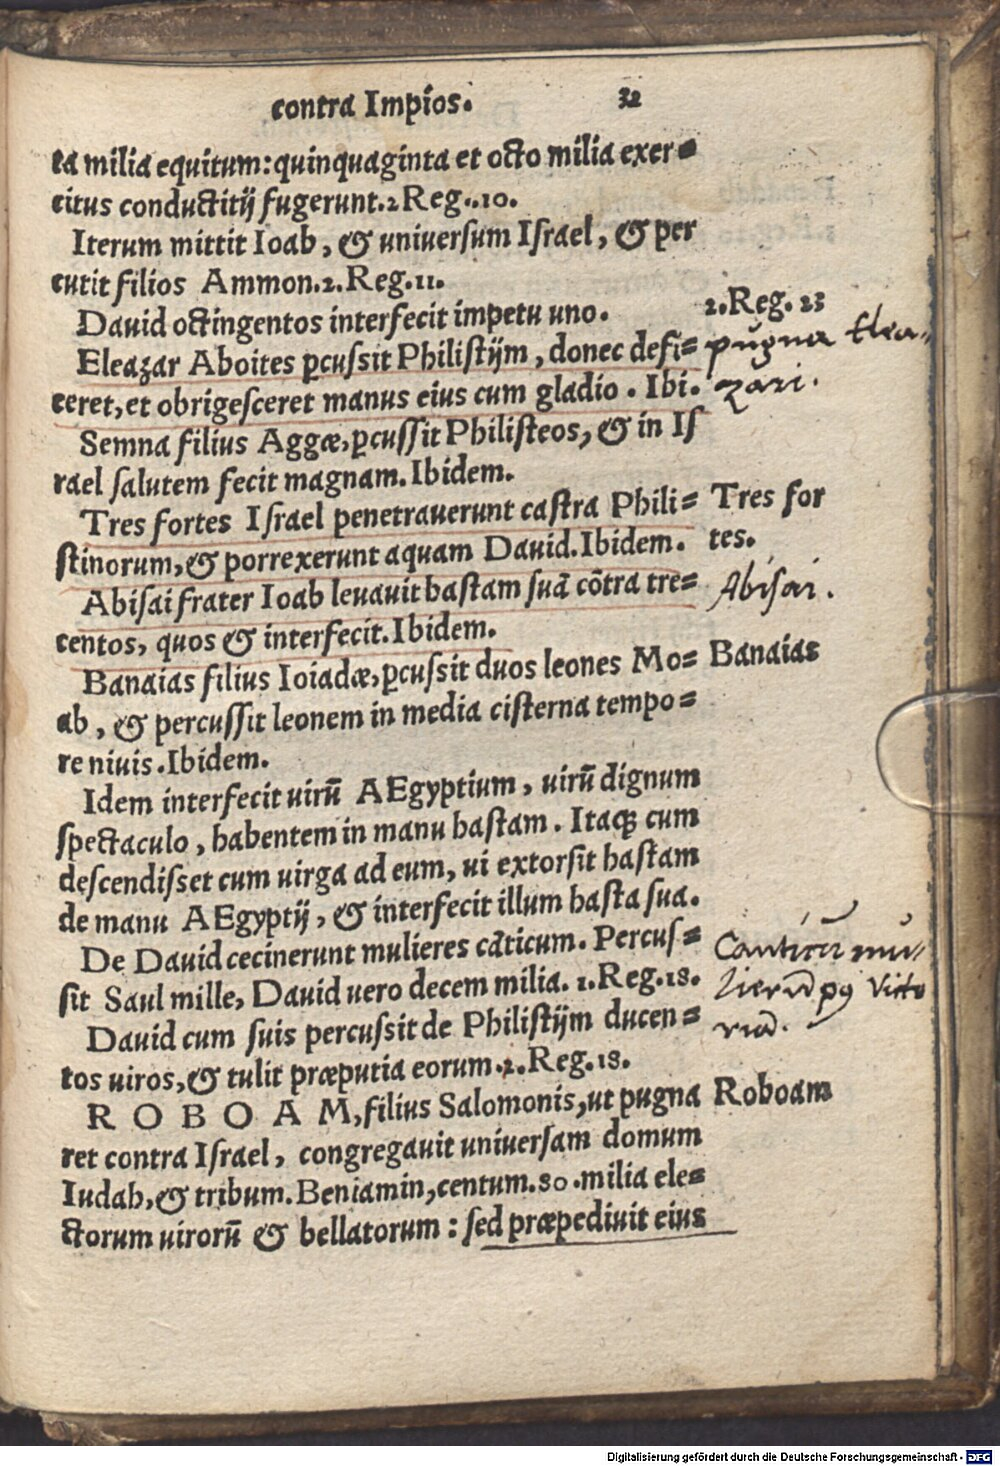 contra Impios. 32
ta milia equitum: quinquaginta et octo milia exer=
citus conductitij fugerunt. 2 Reg. 10.
Iterum mittit Ioab, & uniuersum Israel, & per
cutit filios Ammon. 2. Reg. 11.
Dauid octingentos interfecit impetu uno. 2. Reg. 23
Eleazar Aboites ꝑcussit Philistijm, donec defi= pugna Elea-
ceret, et obrigesceret manus eius cum gladio. Ibi. zari.
Semna filius Aggæ, ꝑcussit Philisteos, & in Is
rael salutem fecit magnam. Ibidem.
Tres fortes Israel penetrauerunt castra Phili= Tres for
stinorum, & porrexerunt aquam Dauid. Ibidem. tes.
Abisai frater Ioab leuauit hastam suā cōtra tre= Abisai.
centos, quos & interfecit. Ibidem.
Banaias filius Ioiadæ, ꝑcussit duos leones Mo= Banaias
ab, & percussit leonem in media cisterna tempo=
re niuis. Ibidem.
Idem interfecit uirū AEgyptium, uirū dignum
spectaculo, habentem in manu hastam. Itaqꝫ cum
descendisset cum uirga ad eum, ui extorsit hastam
de manu AEgyptij, & interfecit illum hasta sua.
De Dauid cecinerunt mulieres cāticum. Percus= Canticū mu-
sit Saul mille, Dauid uero decem milia. 1. Reg. 18. lierū victo
Dauid cum suis percussit de Philistijm ducen= riā.
tos uiros, & tulit præputia eorum. 1. Reg. 18.
R O B O A M, filius Salomonis, ut pugna Roboam
ret contra Israel, congregauit uniuersam domum
Iudah, & tribum. Beniamin, centum. 80. milia ele=
ctorum uirorū & bellatorum: sed præpediuit eius
Digitalisierung gefördert durch die Deutsche Forschungsgemeinschaft - DFG